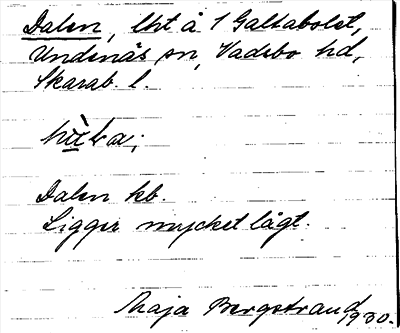 Dalen, lht å 1 Galtabolet,
Undenäs sn, Vadsbo hd,
Skarab. l.
Dalen kb.
Ligger mycket lågt.
Maja Bergstrand
1930.